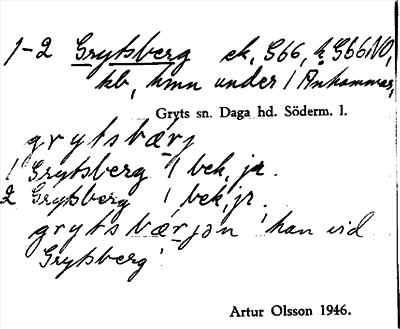 1-2 Grytsberg ek, G66, h̨ G66NO,
kb, hmn under 1 Ånhammar,
Gryts sn. Daga hd. Söderm. l.
grytsbærj
1 Grytsberg 1 bek, jr.
2 Grytsberg 1 bek, jr.
grytsbærjən 'han vid
Grytsberg'
Artur Olsson 1946.